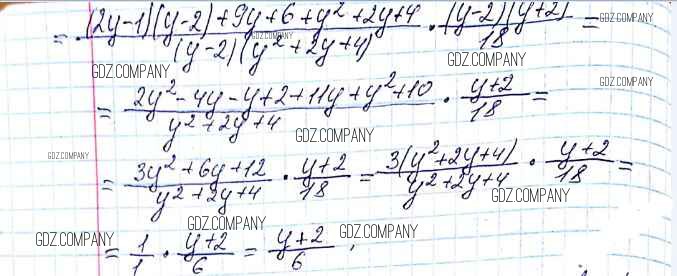 = ((2y-1)(y-2)+9y+6+y²+2y+4)/((y-2)(y²+2y+4)) · ((y-2)(y+2))/18 =
GDZ.COMPANY GDZ.COMPANY GDZ.COMPANY GDZ.COMPANY
= (2y²-4y-y+2+11y+y²+10)/(y²+2y+4) · (y+2)/18 =
GDZ.COMPANY GDZ.COMPANY
= (3y²+6y+12)/(y²+2y+4) · (y+2)/18 = (3(y²+2y+4))/(y²+2y+4) · (y+2)/18 =
GDZ.COMPANY GDZ.COMPANY GDZ.COMPANY
= 1/1 · (y+2)/6 = (y+2)/6 ;
GDZ.COMPANY GDZ.COMPANY GDZ.COMPANY GDZ.COMPANY